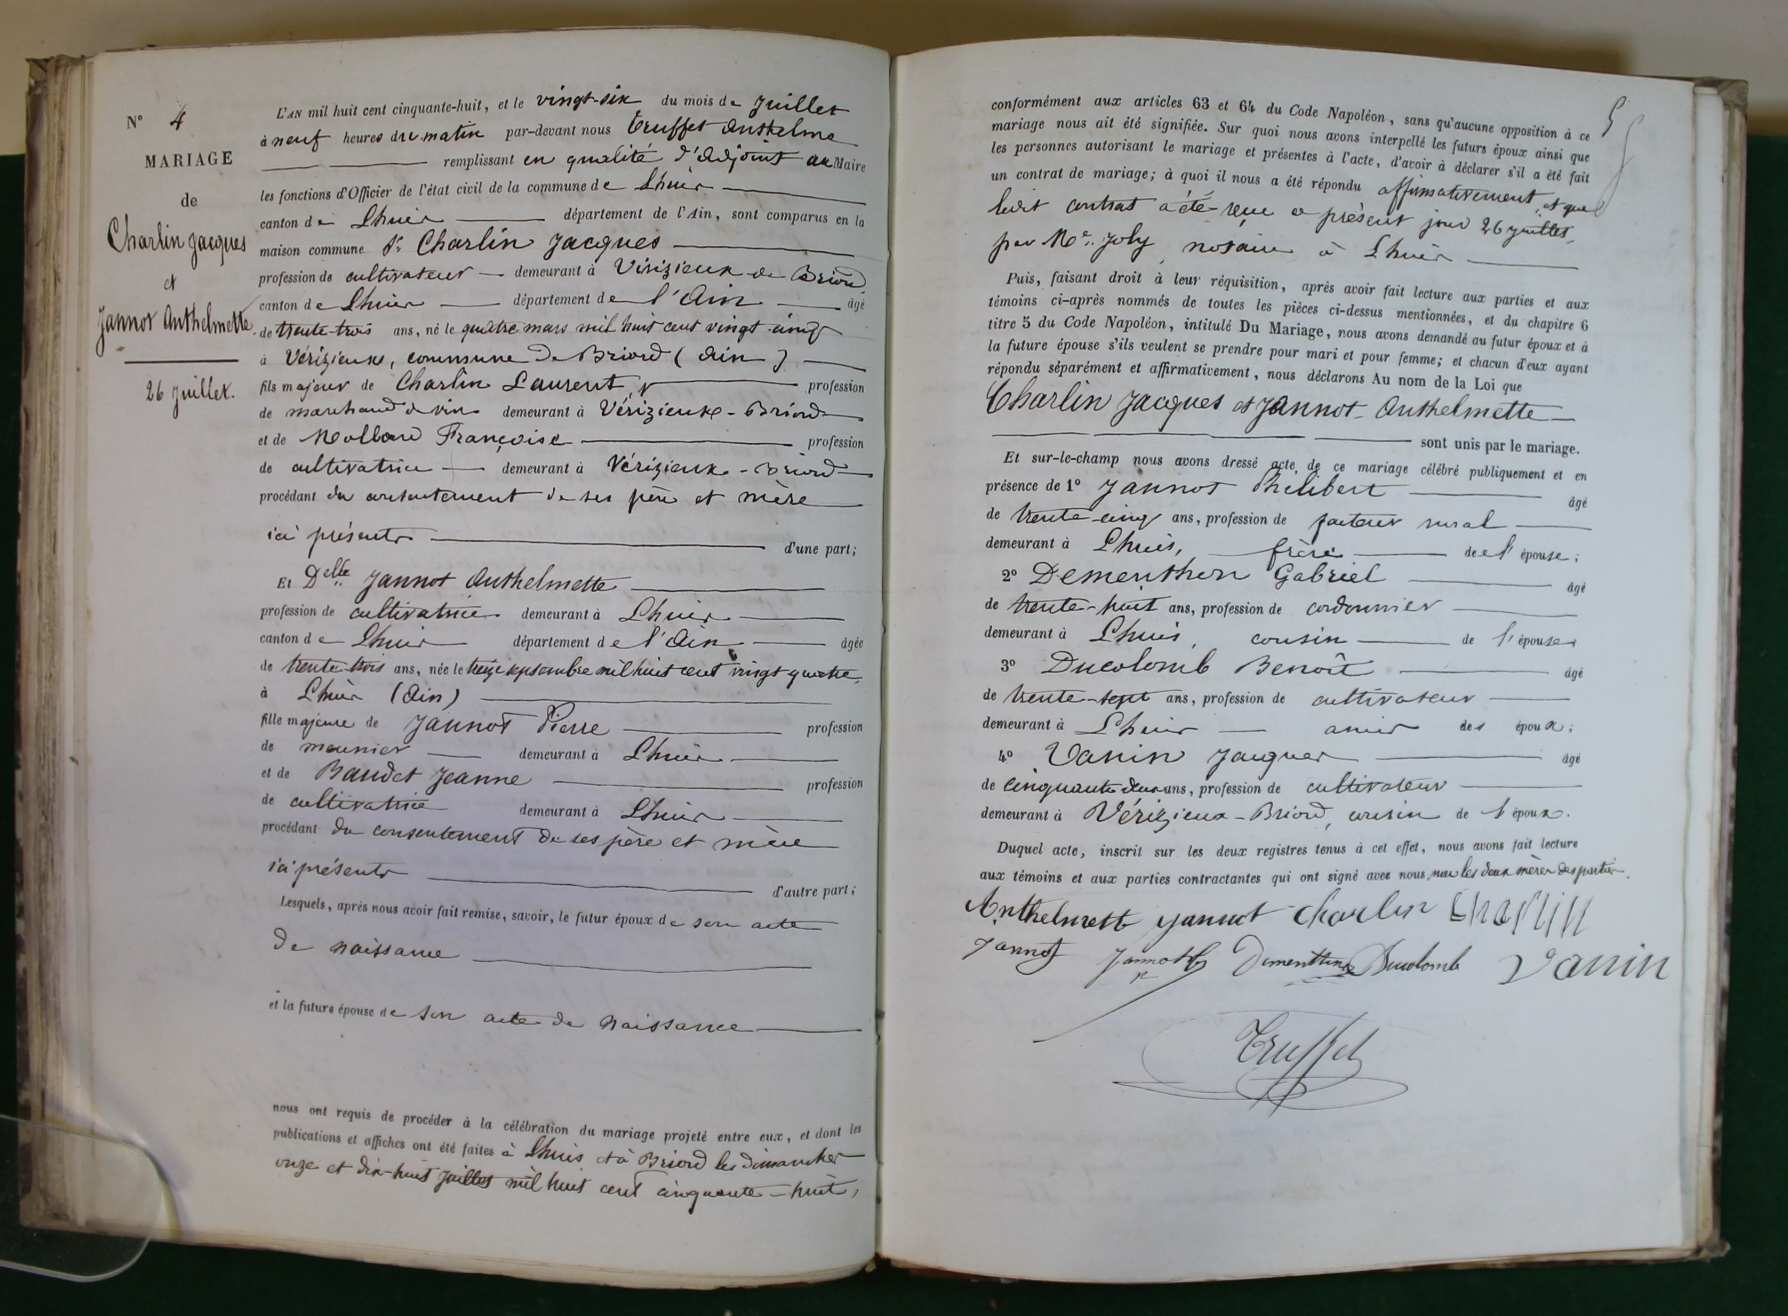 N° 4
MARIAGE
de
Charlin Jacques
et
Jannot Anthelmette
26 juillet.
L'AN mil huit cent cinquante-huit, et le vingt-six du mois de Juillet
à neuf heures du matin par-devant nous Truffet Anthelme
remplissant en qualité d'adjoint au Maire
les fonctions d'Officier de l'état civil de la commune de Lhuis
canton de Lhuis département de l'Ain, sont comparus en la
maison commune Sr Charlin Jacques
profession de cultivateur demeurant à Vérizieux de Briord
canton de Lhuis département de l'Ain âgé
de trente-trois ans, né le quatre mars mil huit cent vingt cinq
à Vérizieux, commune de Briord (Ain)
fils majeur de Charlin Laurent, profession
de marchand de vin demeurant à Vérizieux - Briord
et de Mollard Françoise profession
de cultivatrice demeurant à Vérizieux - Briord
procédant du consentement de ses père et mère
ici présents d'une part;
Et Delle Jannot Anthelmette
profession de cultivatrice demeurant à Lhuis
canton de Lhuis département de l'Ain âgée
de trente-trois ans, née le treize septembre mil huit cent vingt quatre,
à Lhuis (Ain)
fille majeure de Jannot Pierre profession
de meunier demeurant à Lhuis
et de Baudet Jeanne profession
de cultivatrice demeurant à Lhuis
procédant du consentement de ses père et mère
ici présents d'autre part;
Lesquels, après nous avoir fait remise, savoir, le futur époux de son acte
de naissance
et la future épouse de son acte de naissance
nous ont requis de procéder à la célébration du mariage projeté entre eux, et dont les
publications et affiches ont été faites à Lhuis et à Briord les dimanches
onze et dix-huit juillet mil huit cent cinquante-huit,
5
conformément aux articles 63 et 64 du Code Napoléon, sans qu'aucune opposition à ce
mariage nous ait été signifiée. Sur quoi nous avons interpellé les futurs époux ainsi que
les personnes autorisant le mariage et présentes à l'acte, d'avoir à déclarer s'il a été fait
un contrat de mariage; à quoi il nous a été répondu affirmativement, et que
ledit contrat a été reçu ce présent jour 26 juillet,
par Me. Joly, notaire à Lhuis
Puis, faisant droit à leur réquisition, après avoir fait lecture aux parties et aux
témoins ci-après nommés de toutes les pièces ci-dessus mentionnées, et du chapitre 6
titre 5 du Code Napoléon, intitulé Du Mariage, nous avons demandé au futur époux et à
la future épouse s'ils veulent se prendre pour mari et pour femme; et chacun d'eux ayant
répondu séparément et affirmativement, nous déclarons Au nom de la Loi que
Charlin Jacques et Jannot Anthelmette
sont unis par le mariage.
Et sur-le-champ nous avons dressé acte de ce mariage célébré publiquement et en
présence de 1° Jannot Philibert âgé
de trente-cinq ans, profession de facteur rural
demeurant à Lhuis, frère de l'épouse;
2° Dementhon Gabriel âgé
de trente-huit ans, profession de cordonnier
demeurant à Lhuis, cousin de l'épouse
3° Ducolomb Benoît âgé
de trente-sept ans, profession de cultivateur
demeurant à Lhuis amis des époux;
4° Vanin Jacques âgé
de cinquante-deux ans, profession de cultivateur
demeurant à Vérizieux - Briord, cousin de l'époux.
Duquel acte, inscrit sur les deux registres tenus à cet effet, nous avons fait lecture
aux témoins et aux parties contractantes qui ont signé avec nous, non les deux mères des parties.
Anthelmett Jannot Charlin Charlin
Jannot Jannot Dementhon Ducolomb Vanin
Truffet